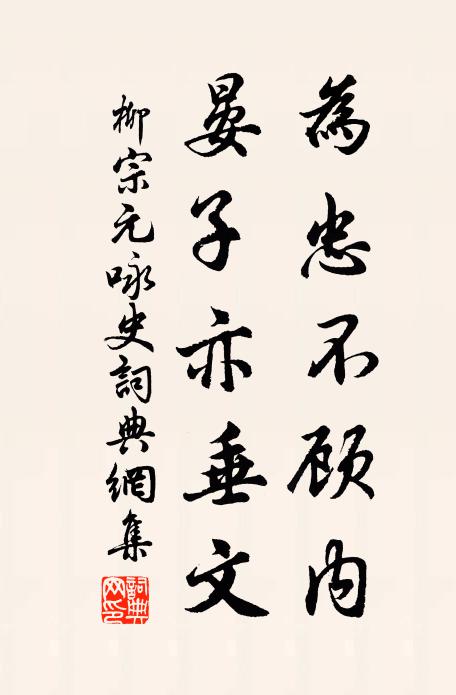 為忠不顧内
晏子亦垂文
柳宗元咏史詞典網集
詞典网印